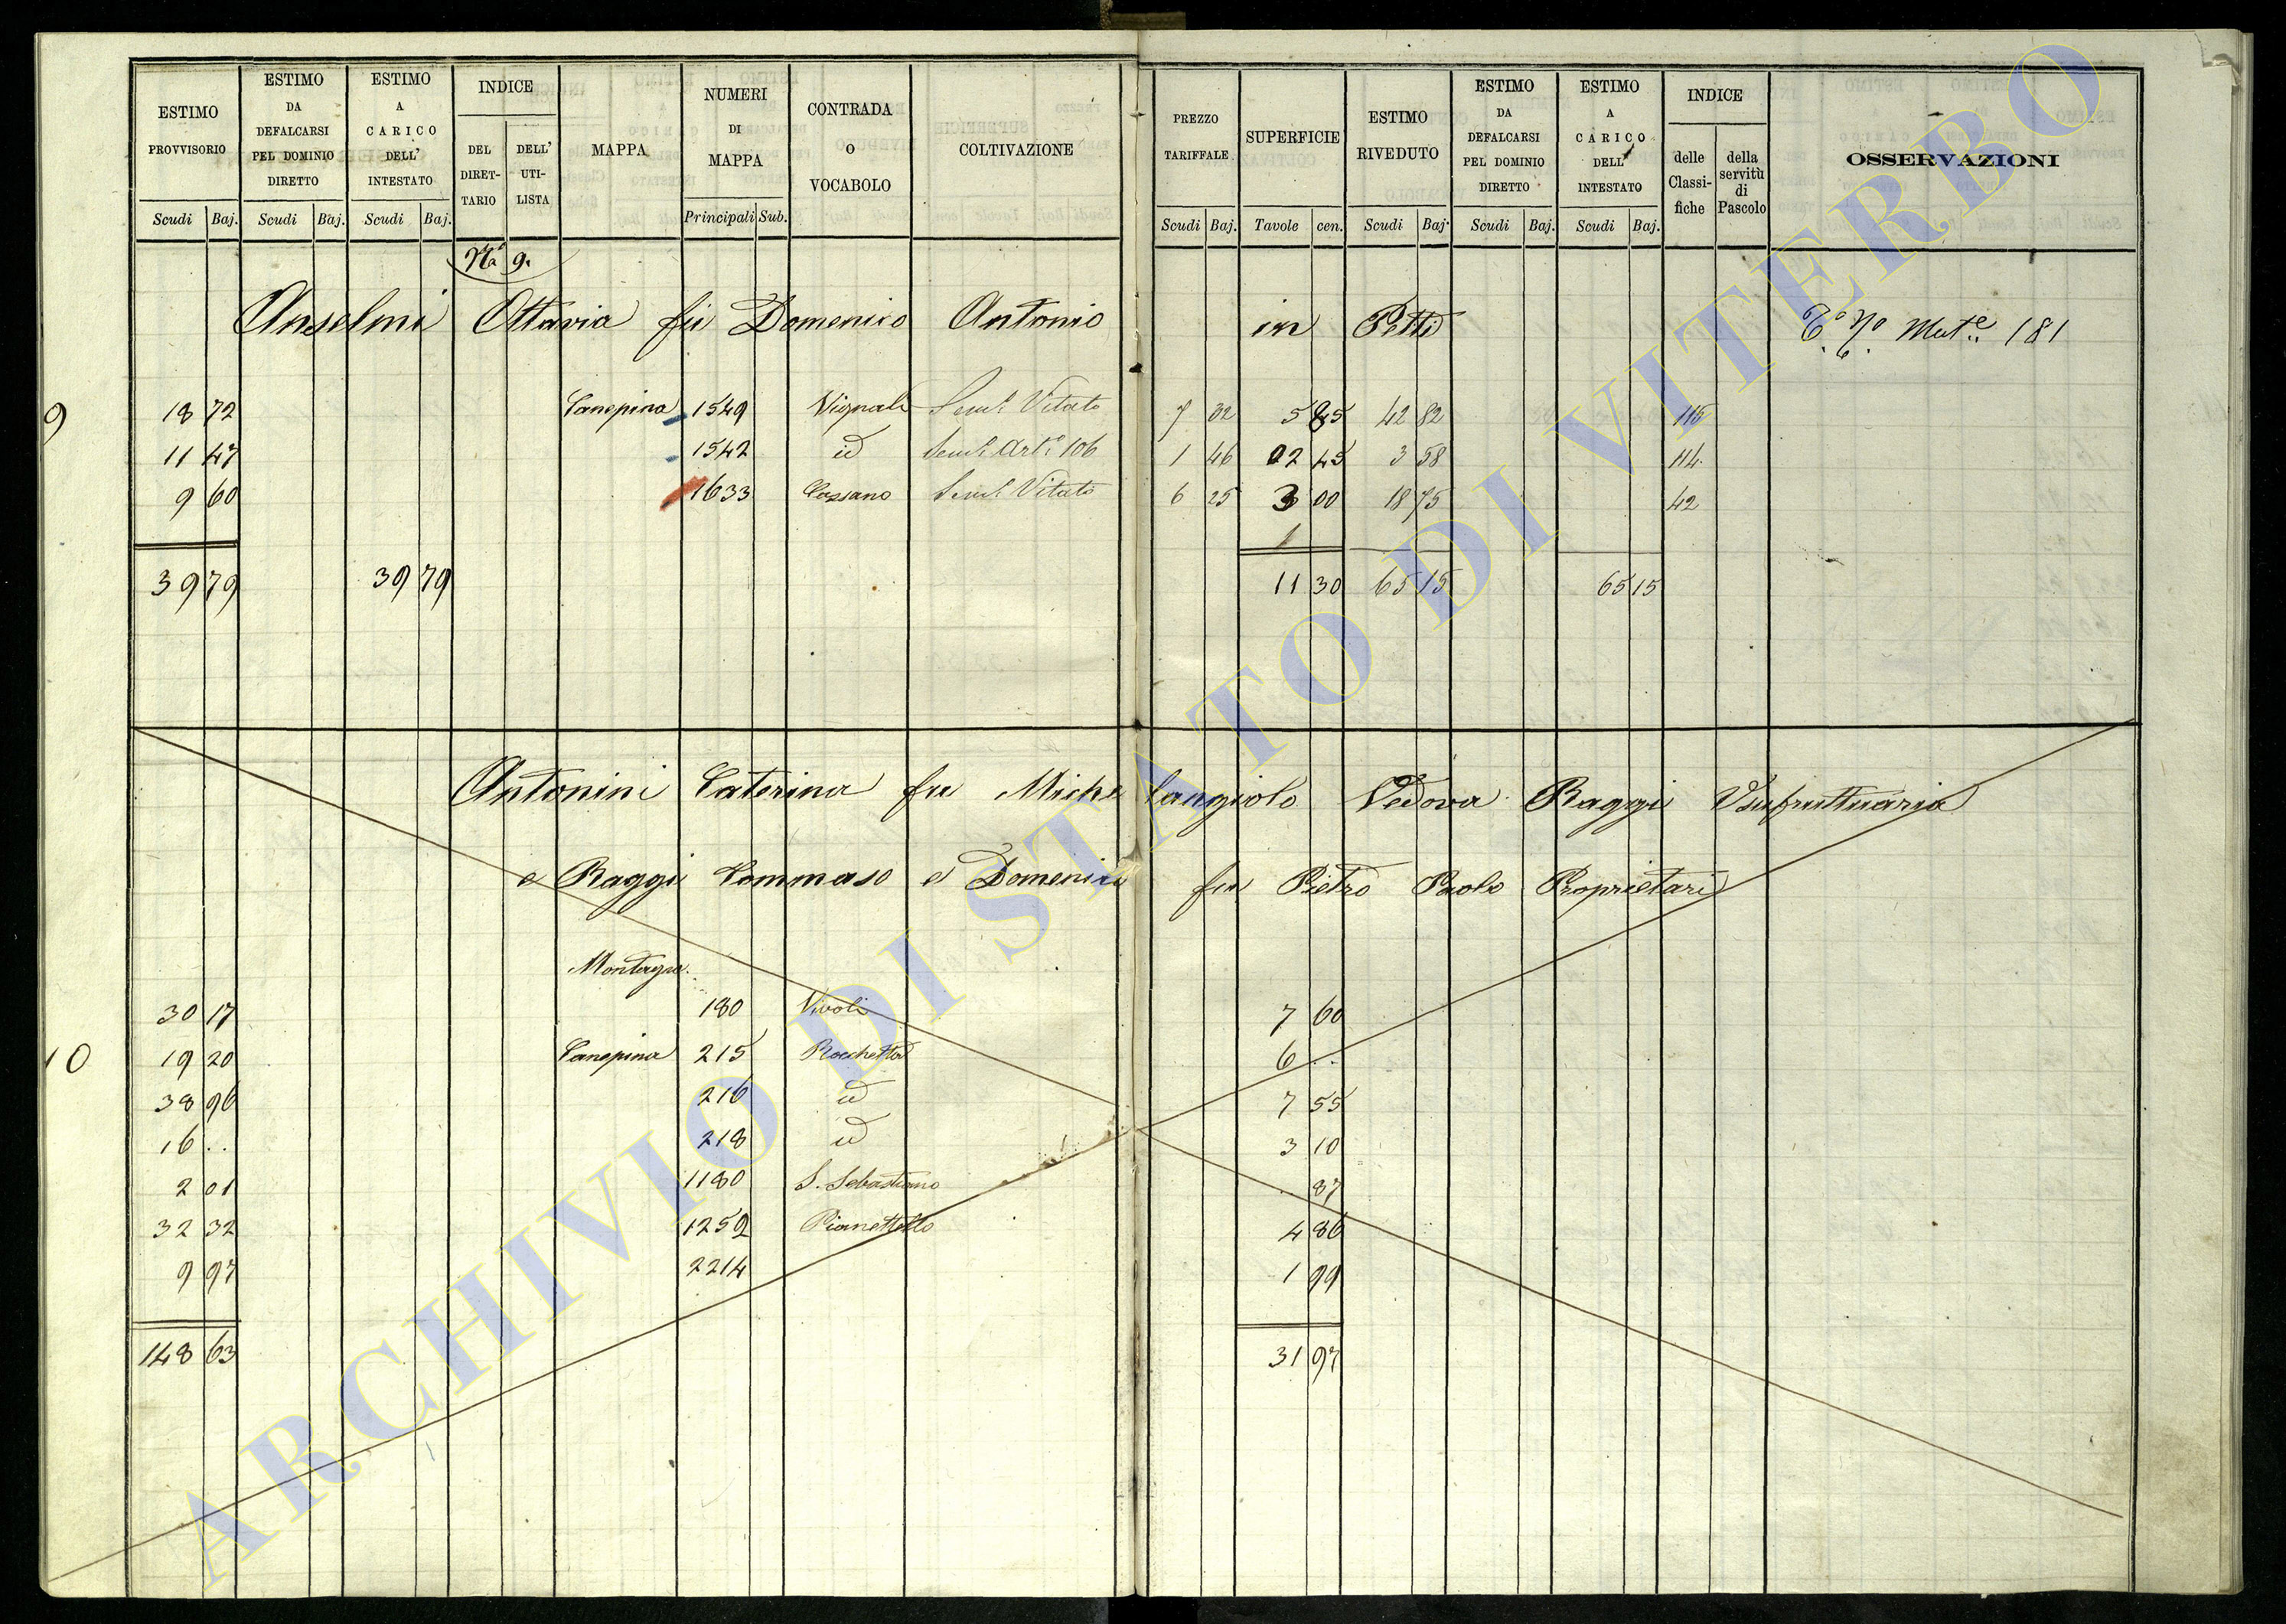 ESTIMO PROVVISORIO | ESTIMO DA DEFALCARSI PEL DOMINIO DIRETTO | ESTIMO A CARICO DELL' INTESTATO | INDICE DEL DIRETTARIO | DELL' UTILISTA | MAPPA | NUMERI DI MAPPA | CONTRADA O VOCABOLO | COLTIVAZIONE | PREZZO TARIFFALE | SUPERFICIE | ESTIMO RIVEDUTO | ESTIMO DA DEFALCARSI PEL DOMINIO DIRETTO | ESTIMO A CARICO DELL' INTESTATO | INDICE delle Classifiche | della servitù di Pascolo | OSSERVAZIONI
Scudi | Baj. | Scudi | Baj. | Scudi | Baj. | Principali | Sub. | Scudi | Baj. | Tavole | cen. | Scudi | Baj. | Scudi | Baj. | Scudi | Baj.
9.
Anselmi Ottavia fu Domenico Antonio in Petti 181
9 | 18 72 | Canepina | 1549 | Vignale | Semo Vitato | 7 32 | 5 85 | 42 82 | 115
11 47 | 1542 | id | Semo Arto 106 | 1 46 | 02 45 | 3 58 | 114
9 60 | 1633 | Cassano | Semo Vitato | 6 25 | 3 00 | 18 75 | 42
39 79 | 39 79 | 11 30 | 65 15 | 65 15
Antonini Caterina fu Michelangiolo Vedova Raggi Usufruttuaria
e Raggi Tommaso e Domenico fu Pietro Paolo Proprietari
Montagna
30 17 | 180 | Vivoli | 7 60
10 | 19 20 | Canepina | 215 | Rocchetta | 6 ..
38 96 | 216 | id | 7 55
16 .. | 218 | id | 3 10
2 01 | 1180 | S. Sebastiano | .. 87
32 32 | 1259 | Pianettello | 4 86
9 97 | 2214 | 1 99
148 63 | 31 97
ARCHIVIO DI STATO DI VITERBO